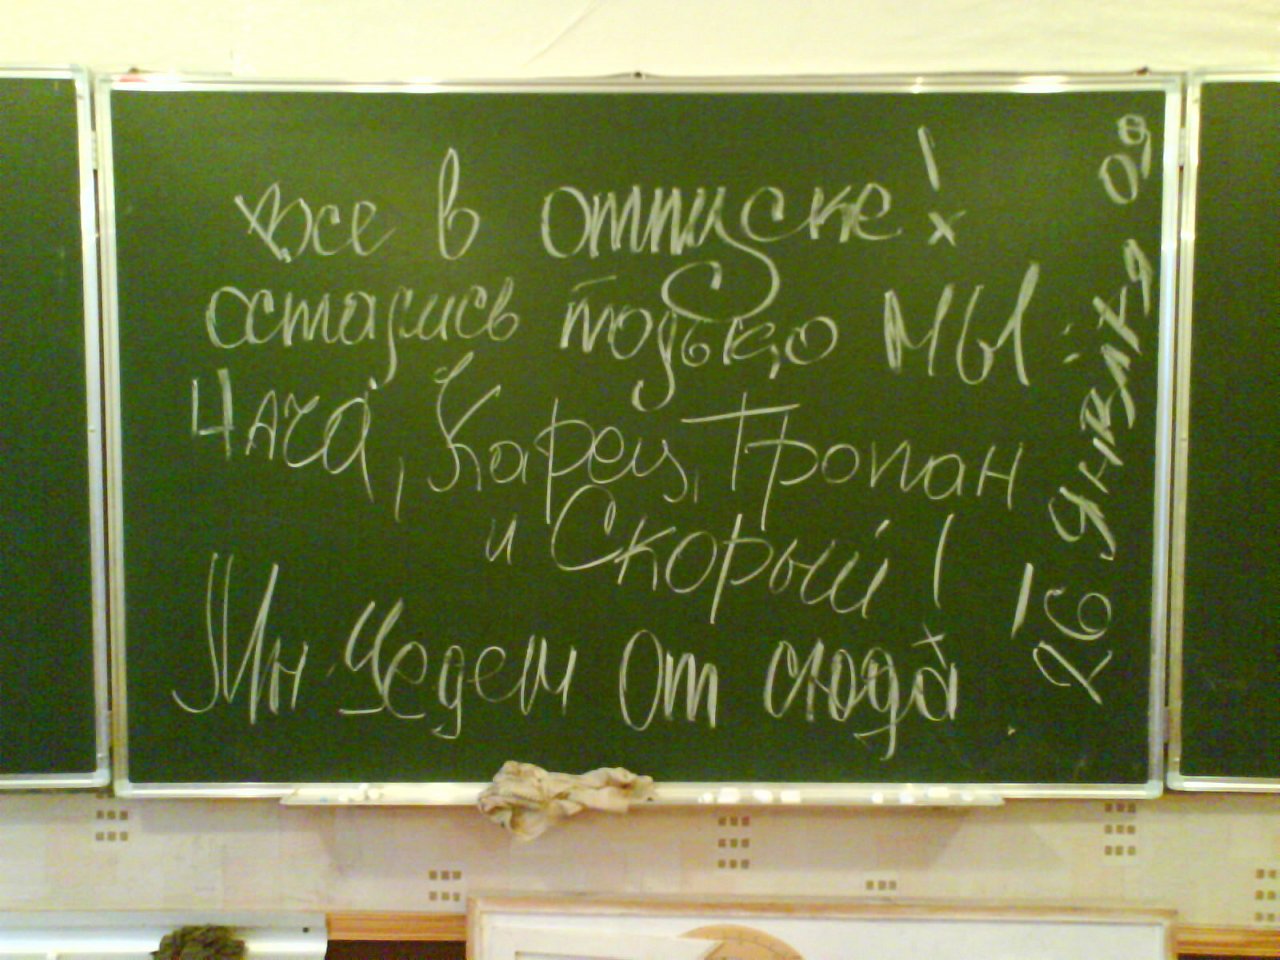 все в отпуске!
остались только мы:
Чача, Карец, Тропан
и Скорый!
Мн уедем от сюда!
26 января 09